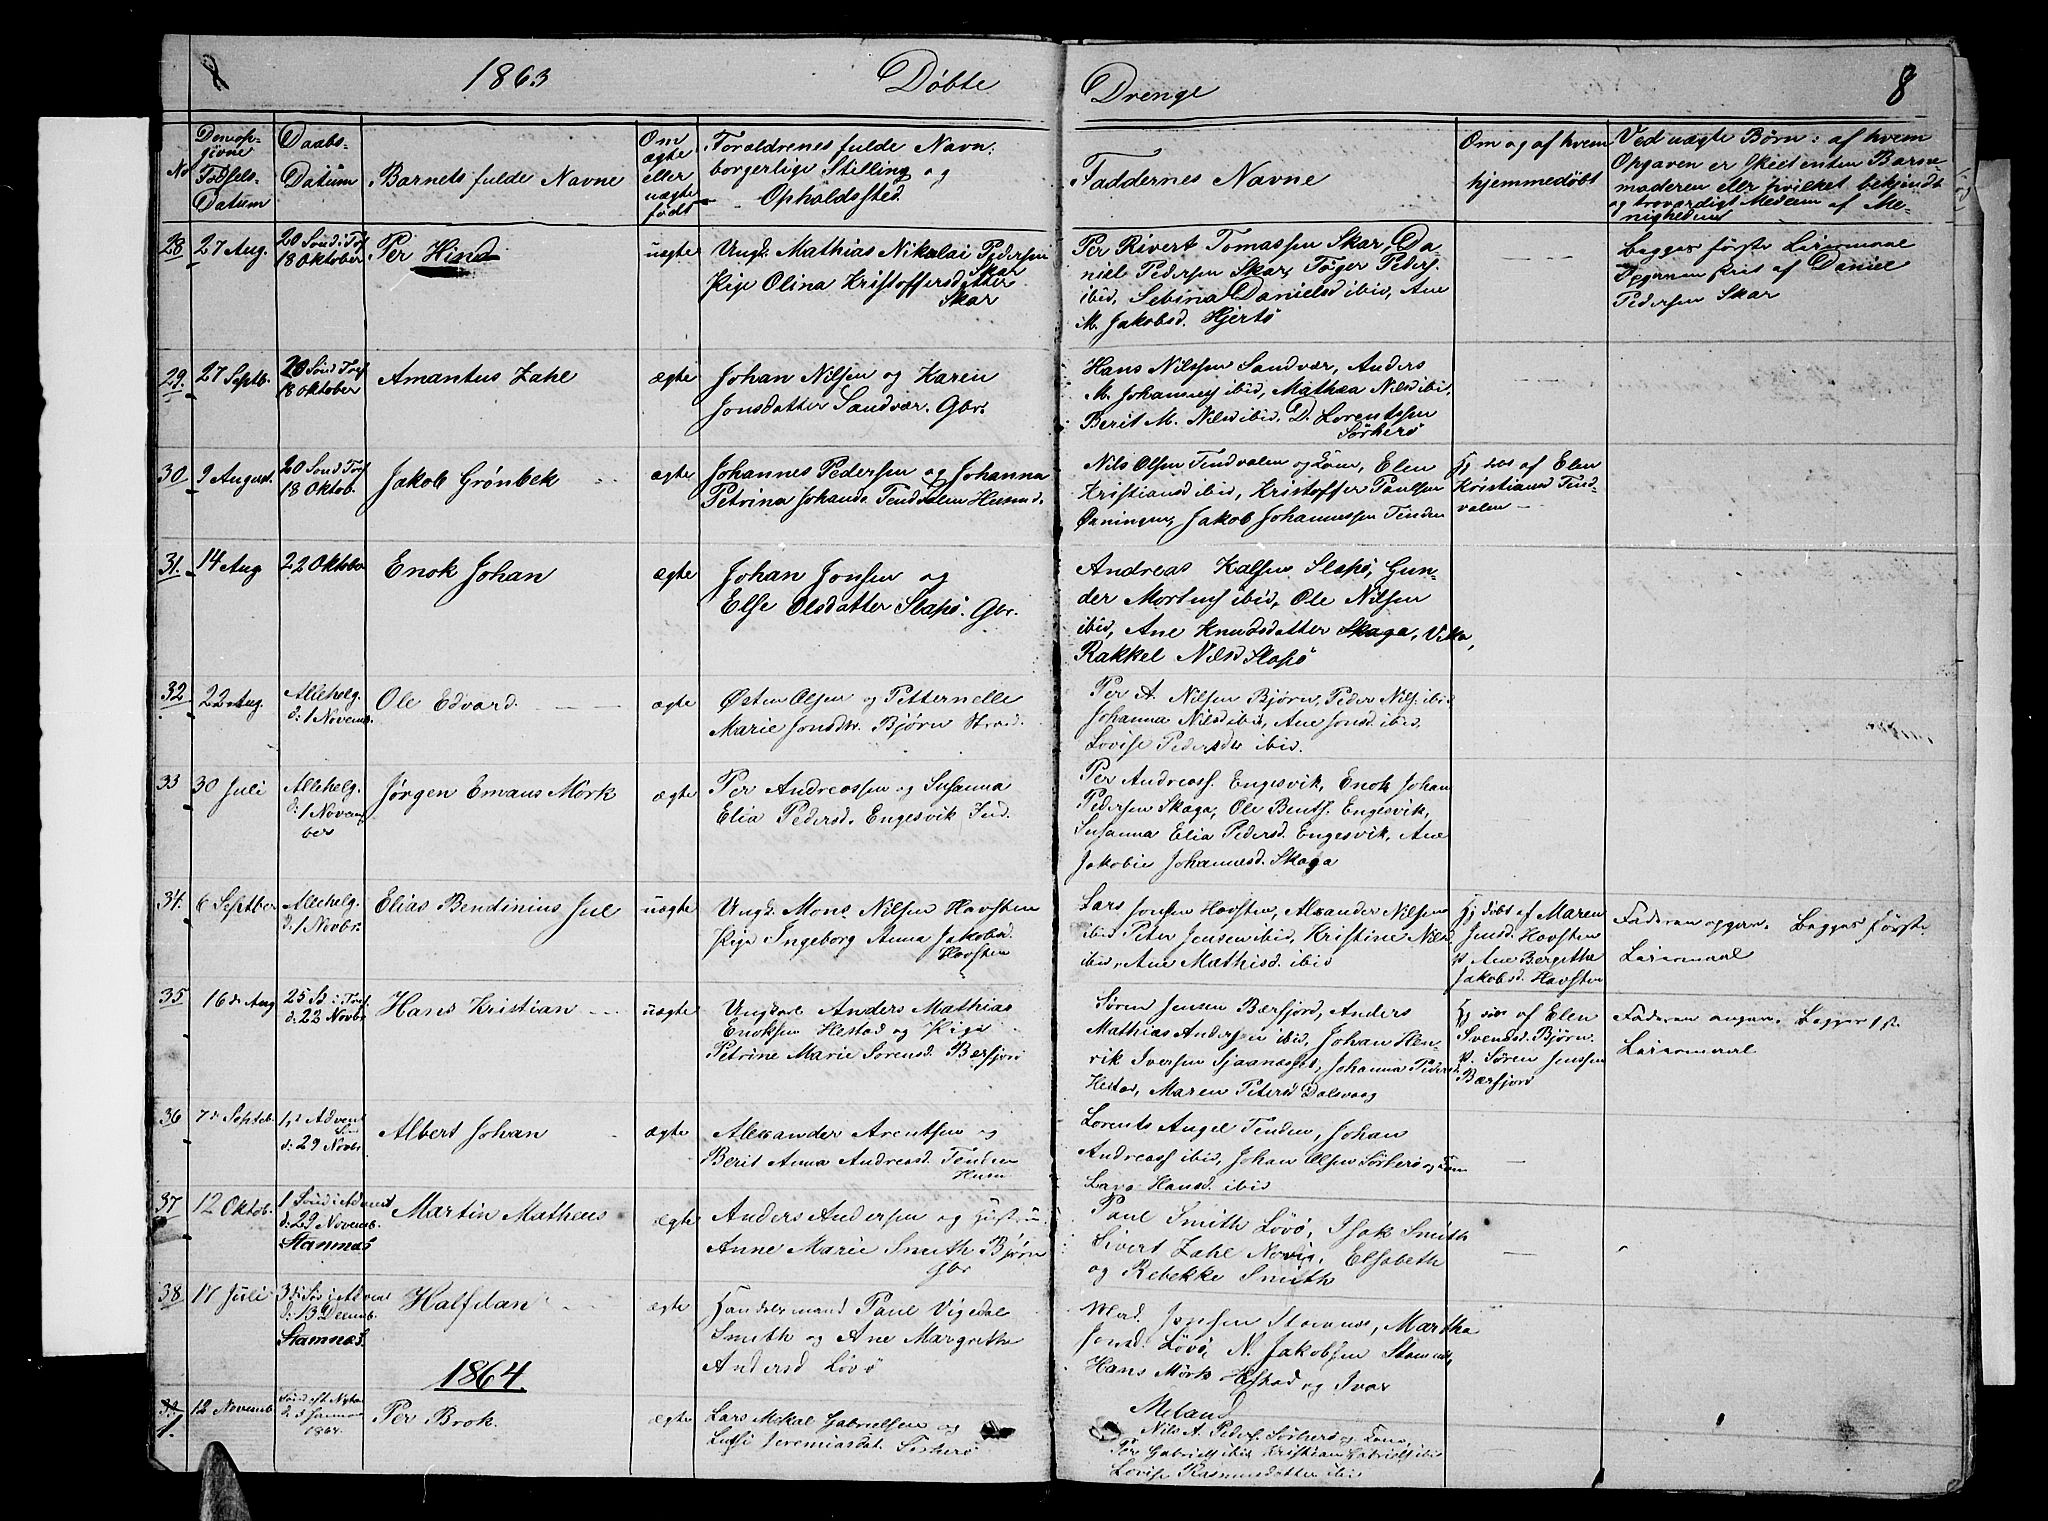 8 1863 Døbte Drenge 8
No
Den opgivne Fødsels-Datum
Daabs-Datum
Barnets fulde Navne
Om ægte eller uægte født
Forældrenes fulde Navn,
borgerlige Stilling og
Opholdssted.
Faddernes Navne
Om og af hvem
hjemmedøbt
Ved uægte Børn: af hvem
Opgaven er skeet enten Barne-
moderen eller hvilket bekjendt
og troværdigt Medlem af Me-
nigheden
28 27 Aug. 20 Sønd. i Tref
18 Oktober
Per Hind
uægte
Ungk. Mathias Nikolai Pedersen
Skar
Pige Olina Kristoffersdatter
Skar
Per Rivert Tomassen Skar, Da-
niel Pedersen Skar, Tøger Peders.
ibid, Sebina Danielsd ibid, Ane
M. Jakobsd. Hjertø
Begges første Leiermaal
Opgaven frit af Daniel
Pedersen Skar
29. 27 Septb. 20 Sønd Tref
18 Oktober
Amantus Zahl
ægte
Johan Nilsen og Karen
Jonsdatter Sandvær. Gbr.
Hans Nilssen Sandvær, Anders
M. Johannes ibid, Mathea Nilsd ibid,
Berit M. Nilsd ibid, D. Lorentssen
Sørherø
30 9 August. 20 Sønd Tref
18 Oktob.
Jakob Grønbek
ægte
Johannes Pedersen og Johanna
Petrina Johansd. Tendvalen Husmd.
Nils Olsen Tendvalen og Kone, Elen
Kristiansd ibid, Kristoffer Paulsen
Øxningen, Jakob Johannessen Tenden
Hj døb af Elen
Kristiansd Tend-
valen
31. 14 Aug 22 Oktober
Enok Johan
ægte
Johan Jonsen og
Else Olsdatter Slapø. Gbr.
Andreas Kalsen Slapø, Gun-
der Mortens ibid, Ole Nilsen
ibid, Ane Knudsdatter Skaga,
Rakkel Nilsd Slapø
32 22 Aug. Allehelg.
d: 1 Novemb.
Ole Edvard
ægte
Østen Olsen og Petternelle
Marie Jonsdtr. Bjørn
Per A. Nilsen Bjørn, Peder Nils. ibid
Johanna Nilsd ibid, Ane Jonsd. ibid,
Lovise Pedersdtr ibid.
33 30 Juli Allehelg.
d: 1 Novem-
ber
Jørgen Emaus Mørk
ægte
Per Andreassen og Susanna
Elia Pedersd. Engesvik Ind.
Per Andreass. Engesvik, Enok Johan
Pedersen Skaga, Ole Bents. Engesvik,
Susanna Elia Pedersd. Engesvik, Ane
Jakobie Johannesd. Skaga
34. 6 Septber Allehelg.
d: 1 Novbr.
Elias Bendinius Jul
uægte
Ungk. Mons Nilsen Havsten
Pige Ingeborg Anna Jakobsd.
Havsten
Lars Jonsen Havsten, Alexander Nilsen
ibid Peter Jensen ibid, Kristine Nilsd
ibid, Ane Mathisd. ibid
Hj døbt af Maren
Jensd. Havsten
p. Ane Bergitha
Jakobsd. Havsten
Faderen opgav. Begges første
Leiermaal
35 16 d. Aug 25 Sd i Tref.
d: 22 Novbr
Hans Kristian
uægte
Ungkarl Anders Mathias
Enoksen Hestad og Pige
Petrine Marie Sørensd. Bærfjord
Søren Jensen Bærfjord, Anders
Mathias Andersen ibid, Johan Hen-
rik Iversen Sjaanæsset, Johanna Pedersd.
Hestad, Maren Petersd Dalsvaag
Hj døb af Elen
Svendsd. Bjørn.
p. Søren Jensen
Bærfjord
Faderen angav. Begges 1st.
Leiermaal
36 7 d Septeb. 1, i Advent
d: 29 Novbr
Albert Johan
ægte
Alexander Arentsen og
Berit Anna Andreasd. Tenden
Husm
Lorents Angel Tenden, Johan
Andreass ibid, Johan Olsen Sørherø og Kone
Lava Hansd. ibid
37 12 Oktob. 1 Sønd i Advent
d: 29 Novemb.
Stamnæs
Martin Matheus
ægte
Anders Andersen og Hustru
Anne Marie Smith Bjørn
Gbr
Paul Smith Løvø, Isak Smith
Sivert Zahl Novig, Elsabeth
og Rebekke Smith
38 17 Juli 3 d: Sø i Advent
d: 13 Decemb.
Stamnæs.
Halfdan
ægte
Handelsmand Paul Vigedal
Smith og Ane Margrethe
Andersd Løvø
Mad. Jensen Stamnæs, Martha
Jonsd. Løvø, N. Jakobsen Stamnæs,
Hans Mørk Hestad og Ivar
Meland
1864
1. 12 Novemb. Sønd eft. Nytaar
d. 3 Januar
1864.
Per Brok.
ægte
Lars Mikal Gabrielsen og
Lussi Jeremiasdat. Sørherø
Nils A. Peders. Sørherø og Kone,
Per Gabriels ibid, Kristian Gabriels ibid
Lovise Rasmusdatter ibid